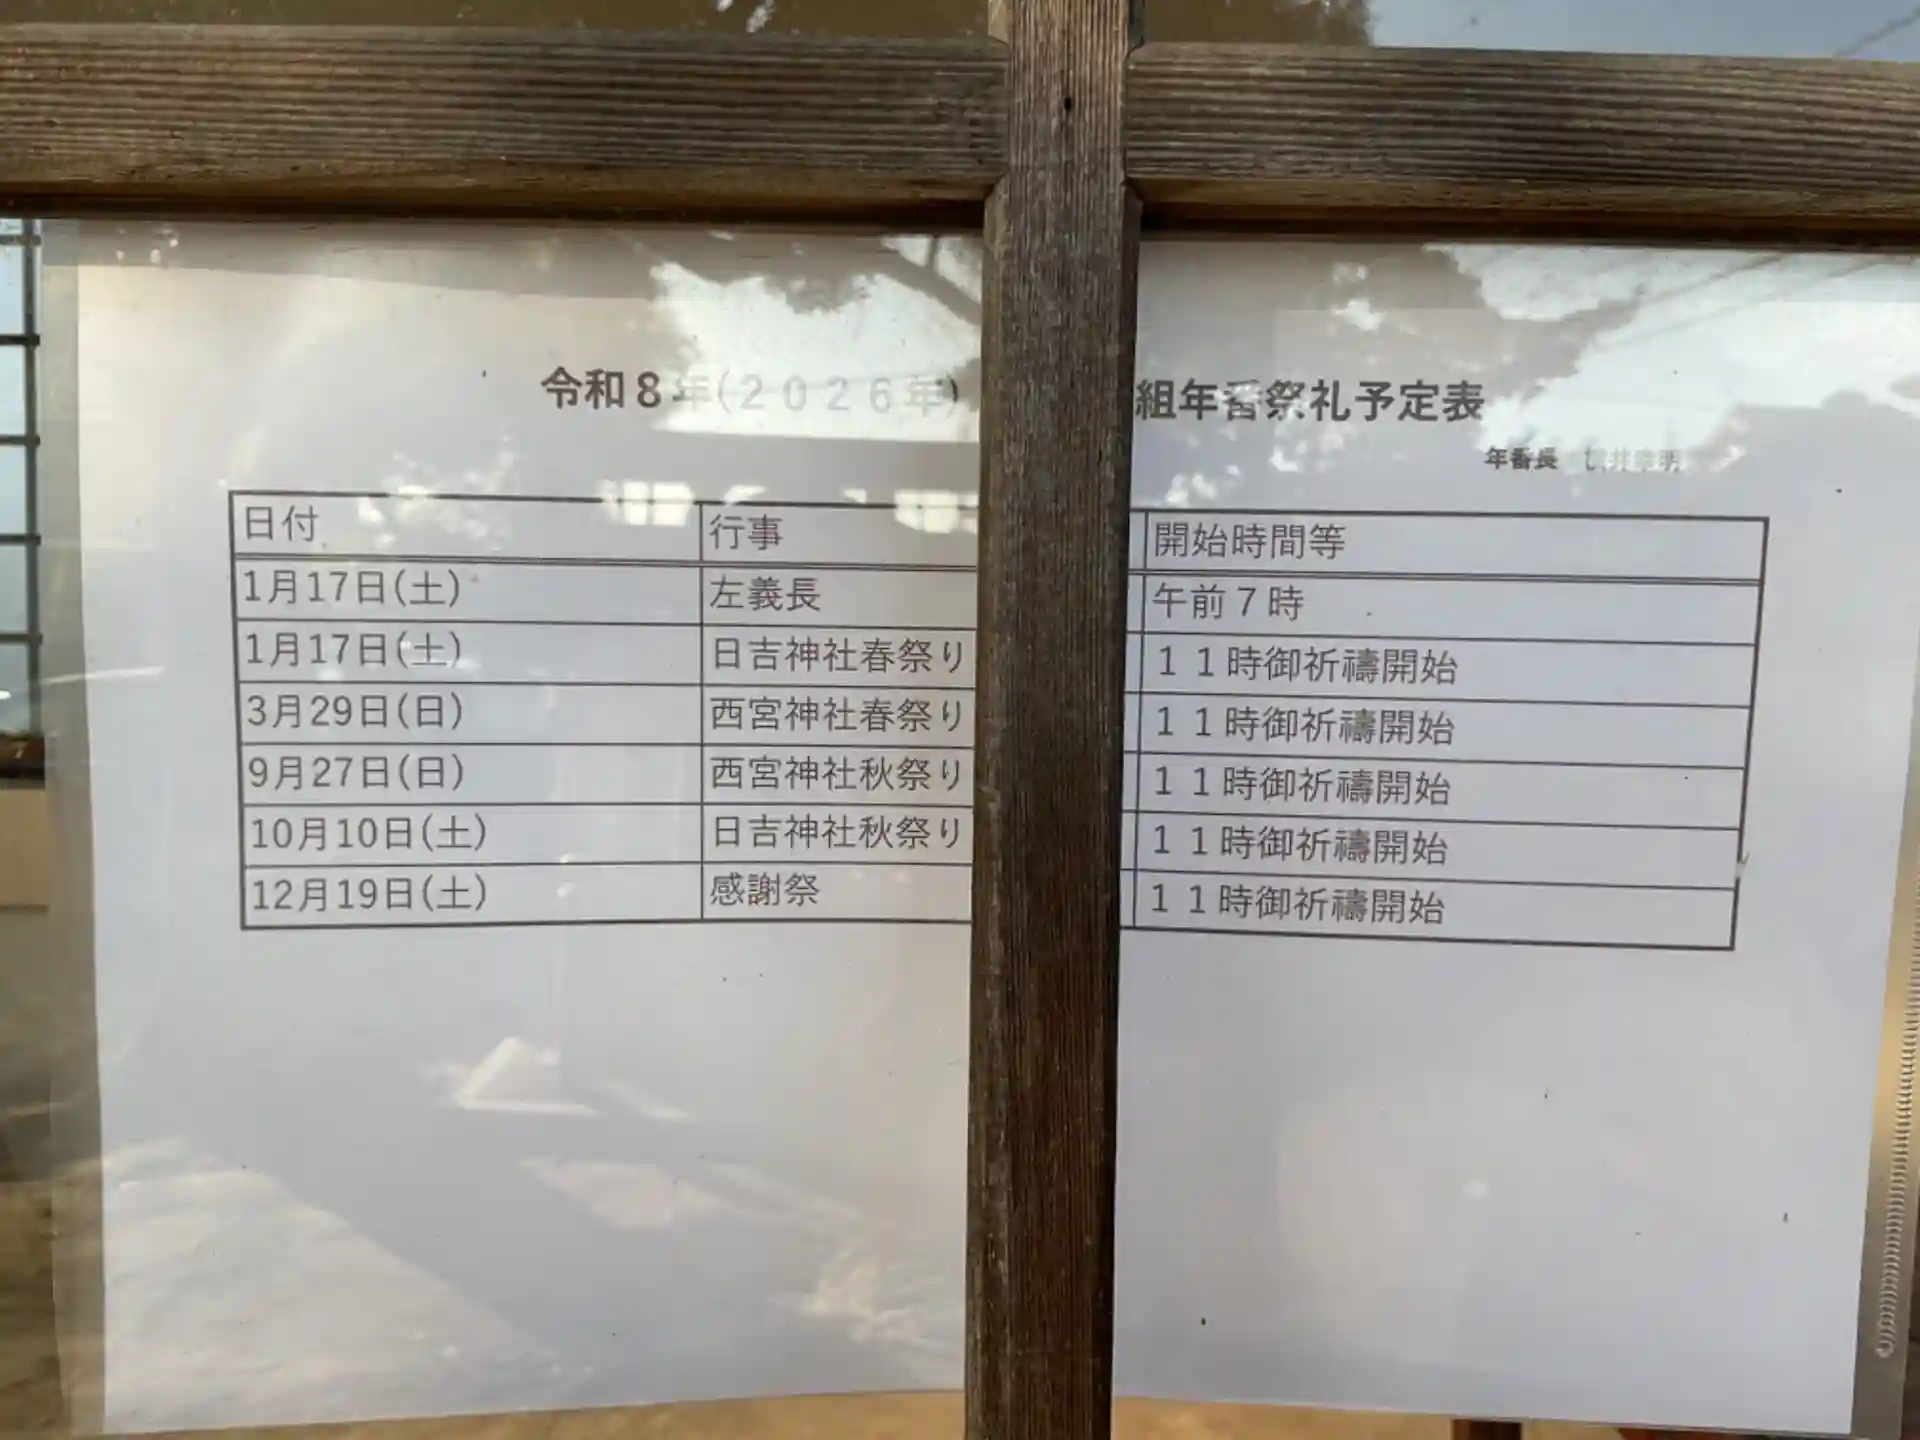 令和８年(２０２６年) 組年番祭礼予定表
年番長
日付 行事 開始時間等
1月17日(土) 左義長 午前７時
1月17日(土) 日吉神社春祭り １１時御祈禱開始
3月29日(日) 西宮神社春祭り １１時御祈禱開始
9月27日(日) 西宮神社秋祭り １１時御祈禱開始
10月10日(土) 日吉神社秋祭り １１時御祈禱開始
12月19日(土) 感謝祭 １１時御祈禱開始